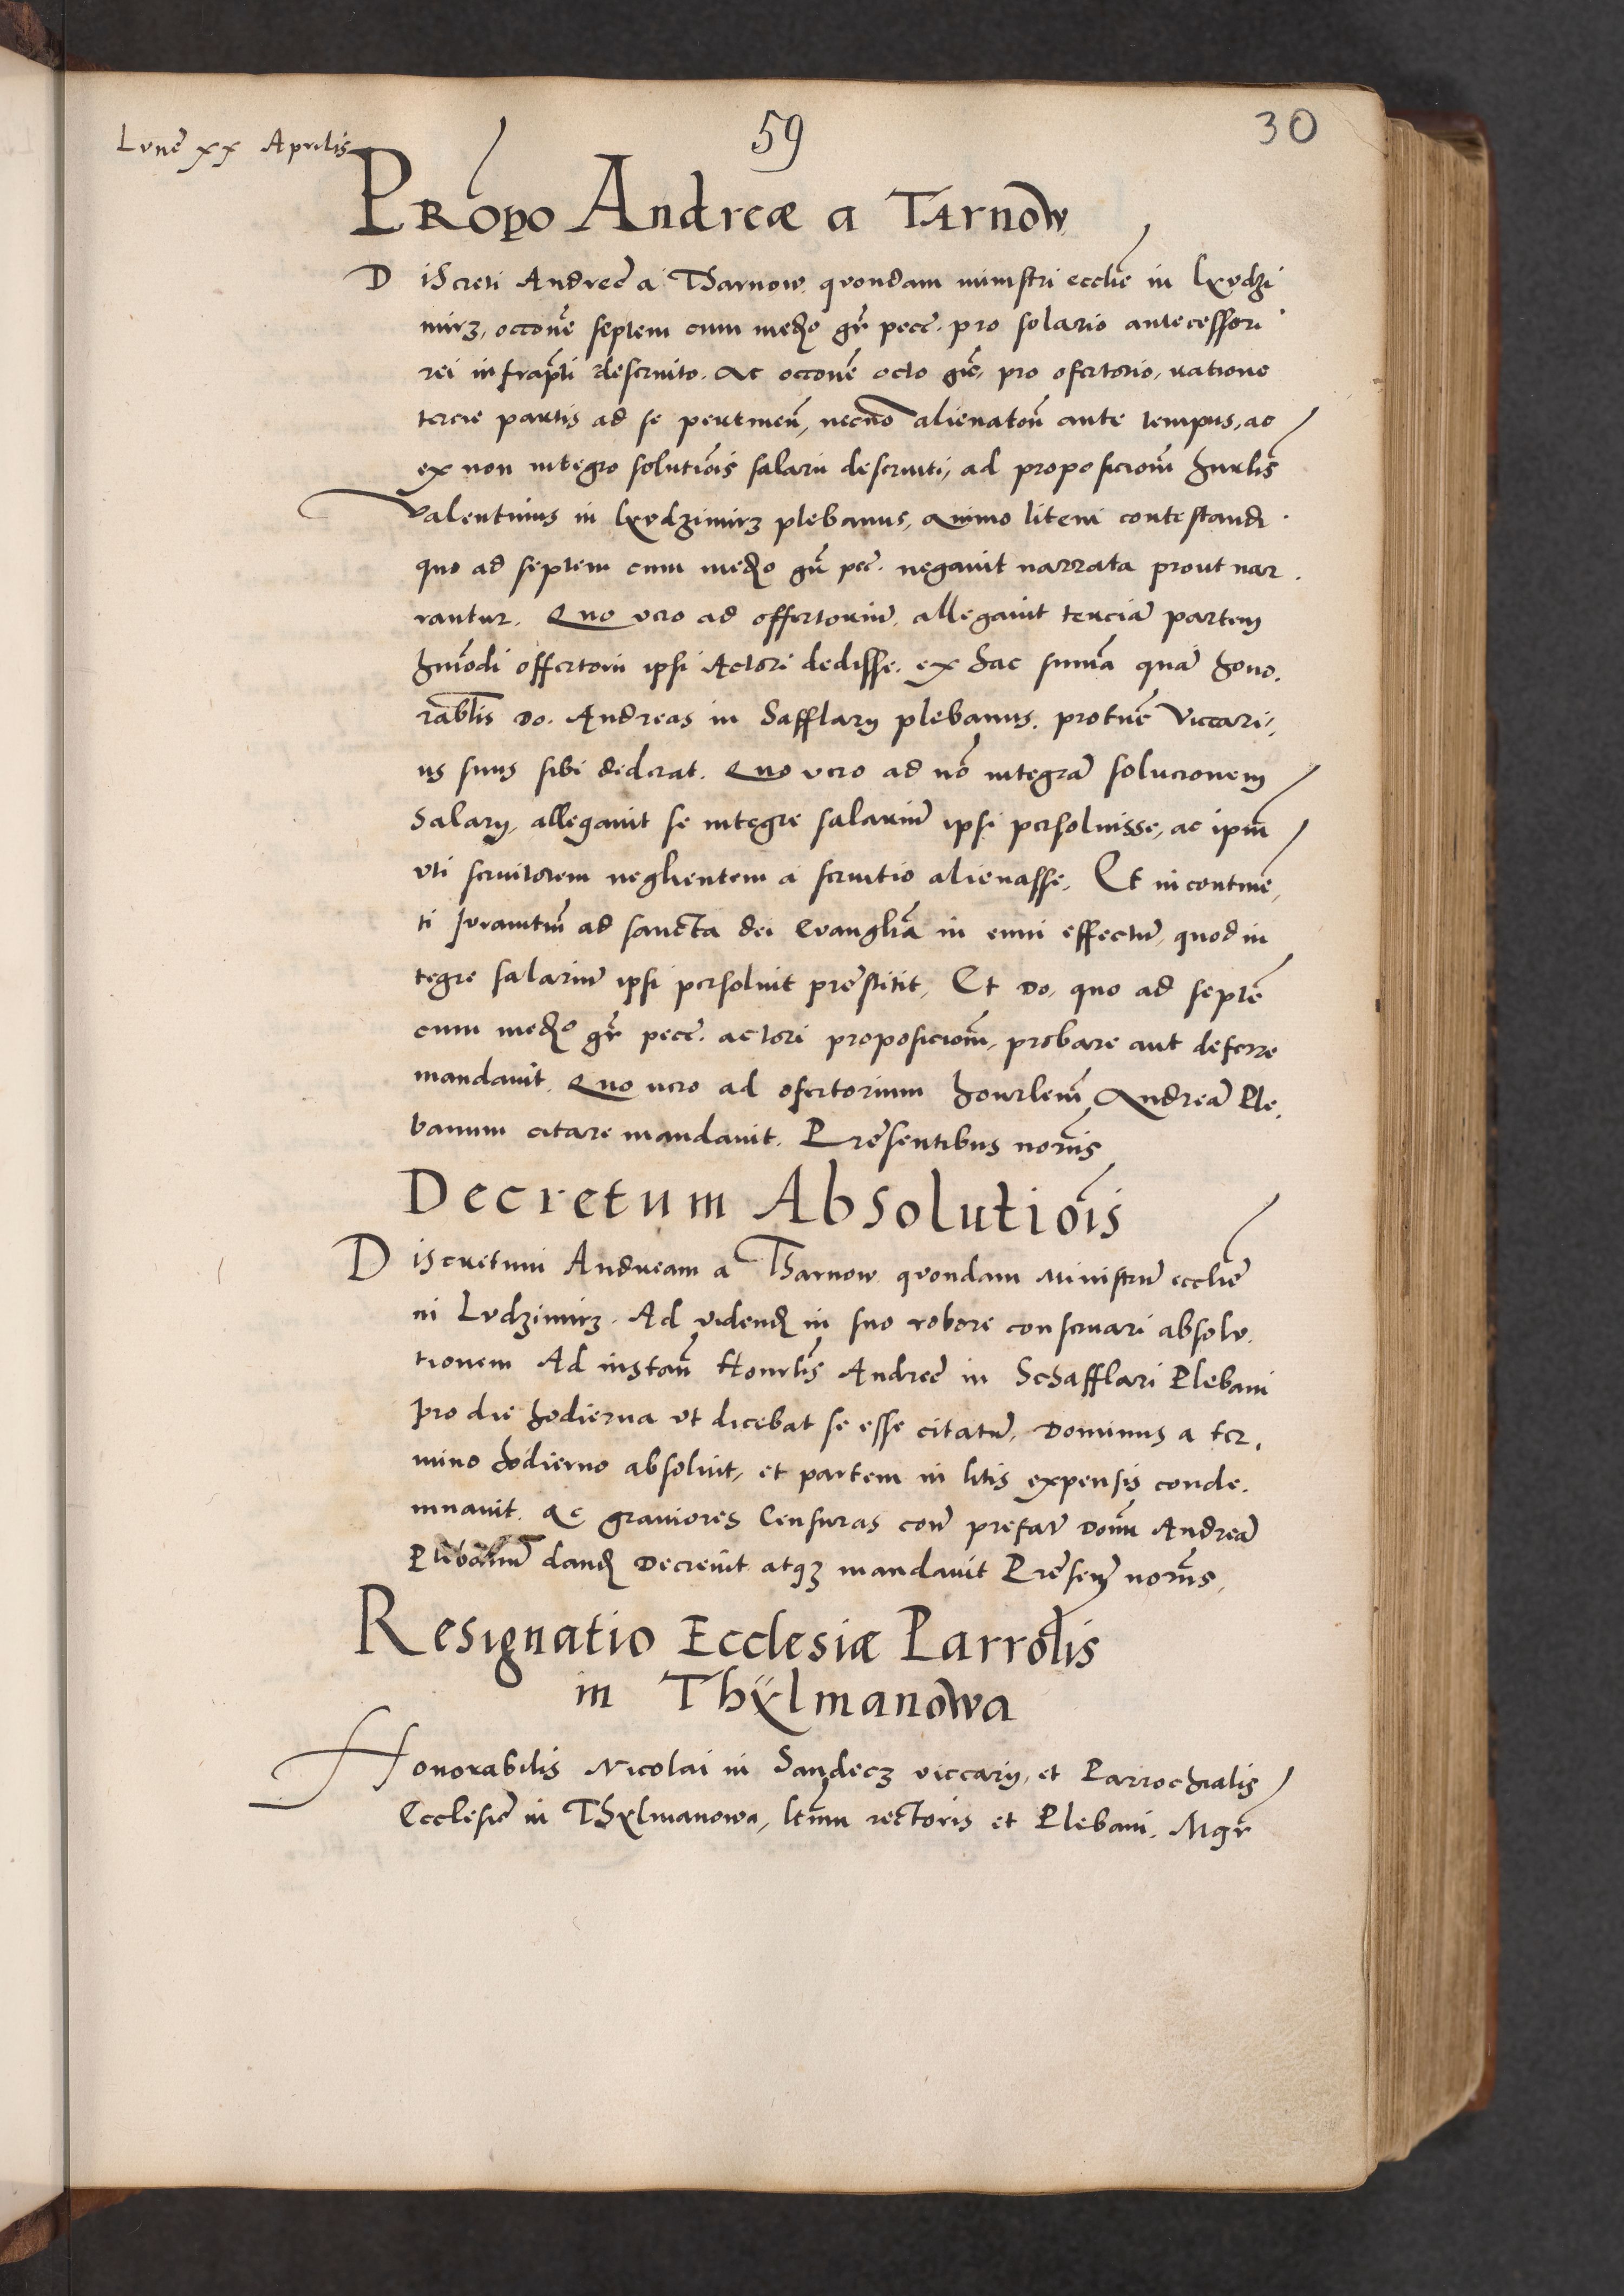 59
30
Lune xx Aprilis
Propo Andreæ a Tarnow
Discreti Andree a Tharnow quondam ministri ecclie in Lxudzi
mirz, occone septem cum medio gr pecc. pro solario antecessori
rei infrapti deservito. Ac occone octo gne, pro ofertorio, ratione
tercie partis ad se pertinen, necno alienaton ante tempus, ac
ex non integro solutiois salarii deserviti, ad proposiciom hnrlis
Valentinus in Lxudzimirz plebanus, animo litem contestandi
quo ad septem cum medio gr pec. negavit narrata prout nar
rantur. Quo vero ad offertorium, allegavit terciã partem
hmodi offertorii ipsi Actori dedisse. ex hac summa quã hono.
rablis Do. Andreas in Safflary plebanus. protunc Viccari,
us suus sibi dederat. Quo vero ad nõ integrã solucionem
Salary, allegavit se integre salariũ ipsi persoluisse, ac ipm
vti servitorem neglientem a servitio alienasse, Et incontine,
ti Juramtm ad sancta dei Evanglia in eum effectũ, quod in
tegre salariũ ipsi persoluit prestitit, Et Do, quo ad septẽ
cum medio gr pecc. actori proposiciom, probare aut deferre
mandavit. Quo vero ad ofertorium honrlem Andreã Ple,
banum citare mandavit. Presentibus noriis
Decretum Absolutiõis
Discretum Andream a Tharnow quondam Ministrũ ecclie
in Ludzimirz. Ad videnđ in suo robore conservari absolu.
tionem Ad instan Honrlis Andree in Schafflari Plebani
pro die hodierna ut dicebat se esse citatũ, Dominus a ter,
mino hodierno absoluit, et partem in litis expensis conde.
mnavit. ac graviores Censuras con prefat Domi Andreã
Plebanũ danđ Decrevit atqz mandavit Presen noriis,
Resignatio Ecclesiæ Parrolis
in Thÿlmanowa
Honorabilis Nicolai in Sandecz viccary, et Parrochialis
Ecclesie in Thylmanowa, ltimi rectoris et Plebani. Mgr